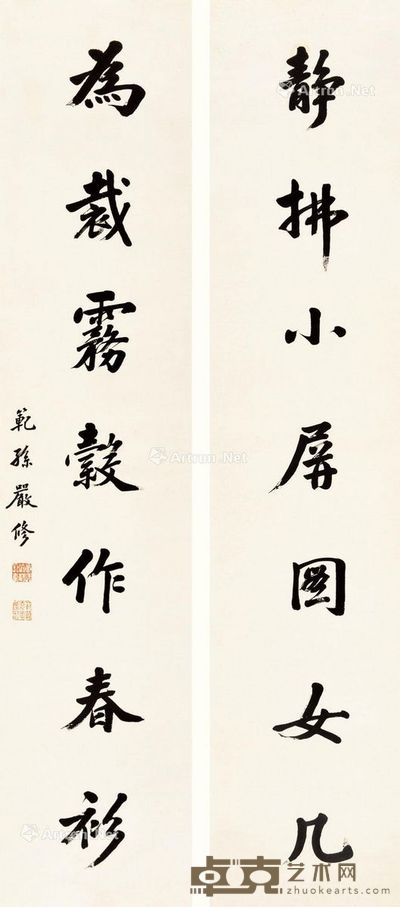 静拂小屏圖女几
為裁霧縠作春衫
範孫嚴修
Artron.Net
Artron.Net
Artron.Net
Artron.Net
Artron.Net
卓克艺术网
zhuokearts.com